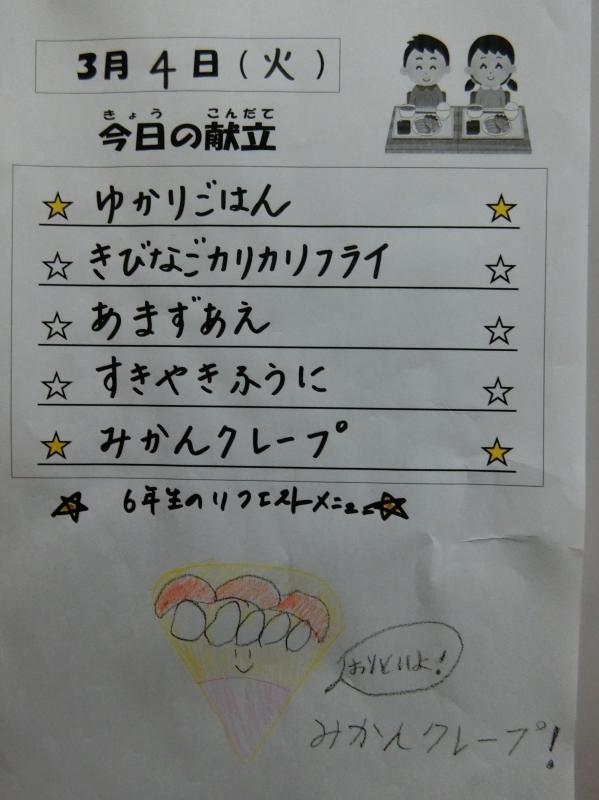 3月4日(火)
きょう こんだて
今日の献立
☆ ゆかりごはん ☆
☆ きびなごカリカリフライ ☆
☆ あまずあえ ☆
☆ すきやきふうに ☆
☆ みかんクレープ ☆
☆ 6年生のリクエストメニュー☆
おいしいよ!
みかんクレープ!